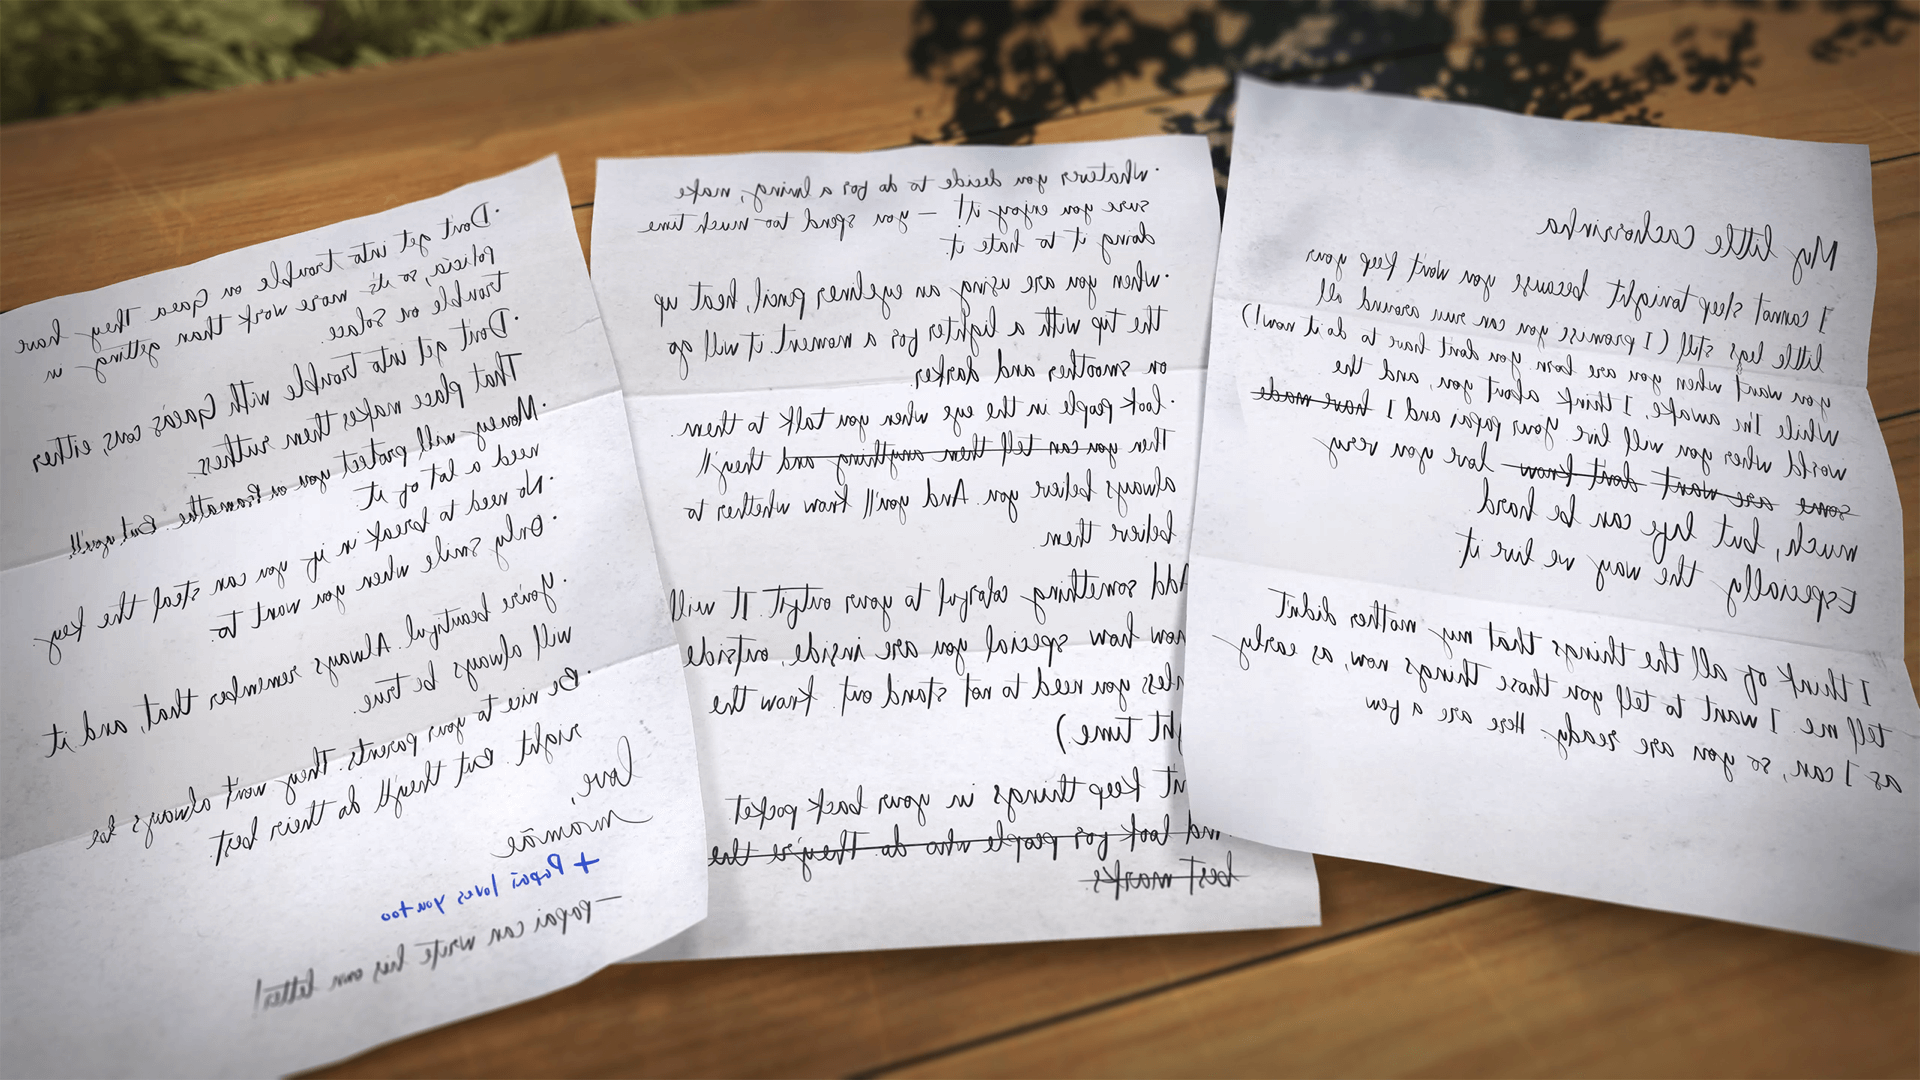 My little cachorrinha
I cannot sleep tonight because you won't keep your
little legs still (I promise you can run around all
you want when you are born you don't have to do it now!)
While I'm awake, I think about you, and the
world when you will live. your papai and I have made
some are want don't know love you very
much, but life can be hard.
Especially the way we live it.
I think of all the things that my mother didn't
tell me. I want to tell you those things now, as early
as I can, so you are ready. Here are a few
· whatever you decide to do for a living, make
sure you enjoy it! – you spend too much time
doing it to hate it.
· when you are using an eyeliner pencil, heat up
the tip with a lighter for a moment. it will go
on smoother and darker.
· look people in the eye when you talk to them.
Then you can tell them anything and they'll
always believe you. And you'll know whether to
believe them.
Add something colorful to your outfit. It will
how how special you are inside, outside.
less you need to not to stand out. Know the
ght time.)
n't keep things in your back pocket
and look for people who do. They're the
best marks.
· Don't get into trouble on Gaea. They have
policia, so it's more work than getting in
trouble on Solace.
· Don't get into trouble with Gaea's cons, either
That place makes them ruthless.
· Money will protect you on Promathe. But you'll
need a lot of it.
· No need to break in if you can steal the key
· Only smile when you want to.
· You're beautiful. Always remember that, and it
will always be true.
· Be nice to your parents. They won't always be
right. But they'll do their best.
love,
mamãe
+ Papai loves you too
– papai can write his own letter!